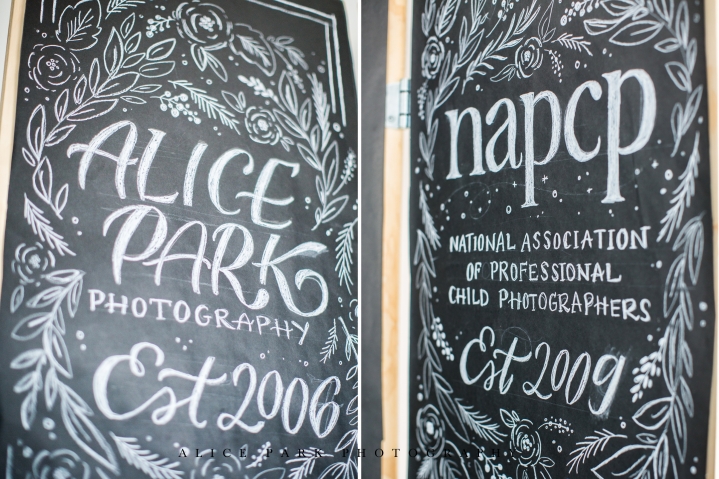 ALICE
PARK
PHOTOGRAPHY
Est 2006
napcp
NATIONAL ASSOCIATION
OF PROFESSIONAL
CHILD PHOTOGRAPHERS
Est 2009
ALICE PARK PHOTOGRAPHY